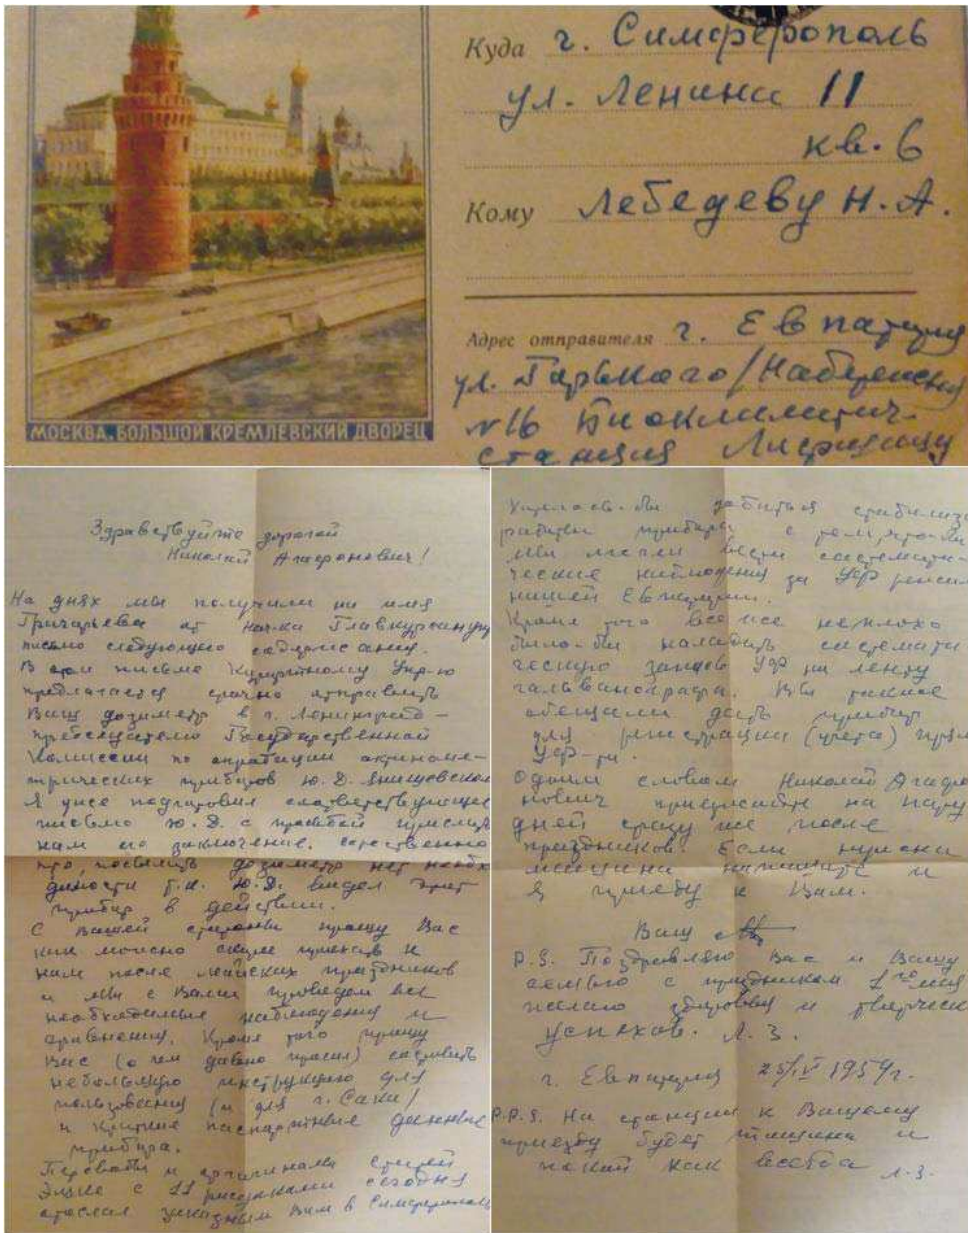 МОСКВА. БОЛЬШОЙ КРЕМЛЕВСКИЙ ДВОРЕЦ
Куда г. Симферополь
ул. Ленина 11
кв. 6
Кому Лебедеву Н. А.
Адрес отправителя г. Евпатория
ул. Горького/Набережная
№16 Биоклиматич.
станция
Здравствуйте дорогой
Николай Агафонович!
На днях мы получили на имя
Григорьева от
письмо следующего содержания.
В этом письме Курортному Упр-ю
предлагается срочно отправить
Ваш дозиметр в г. Ленинград –
председателю Государственной
Комиссии по апробации актиноме-
трических приборов Ю. Д. Янишевскому
Я уже подготовил соответствующее
письмо Ю. Д. с просьбой прислать
нам его заключение. Собственно
посылать дозиметр нет необхо
димости т.к. Ю.Д. видел этот
прибор в действии.
С Вашей стороны прошу Вас
как можно скорее приехать к
нам после майских праздников
и мы с Вами проведем все
необходимые наблюдения и
сравнения. Кроме того прошу
Вас (о чем давно просил) составить
небольшую инструкцию для
пользования (и для г. Саки)
и краткие паспортные данные
прибора.
Переводы и оригиналы статей
с 11 рисунками сегодня
отослал заказным Вам в Симферополь
Хотелось-бы добиться стабилиза
работы прибора с тем, что-бы
мы могли вести системати-
ческие наблюдения за УФ
нашей Евпатории.
Кроме того все же неплохо
было-бы наладить системати
ческую запись УФ на ленту
гальванографа. Вы также
обещали дать прибор
для регистрации (учета)
УФ-
Одним словом Николай Агафо
нович приезжайте на пару
дней сразу же после
праздников. Если нужна
машина напишите и
я приеду к Вам.
Ваш
P.S. Поздравляю Вас и Вашу
семью с праздником 1го мая
желаю здоровья и творческ
успехов. Л. З.
г. Евпатория 25/IV 1959г.
P.P.S. На станции к Вашему
приезду будет тишина и
покой как всегда
Л.З.